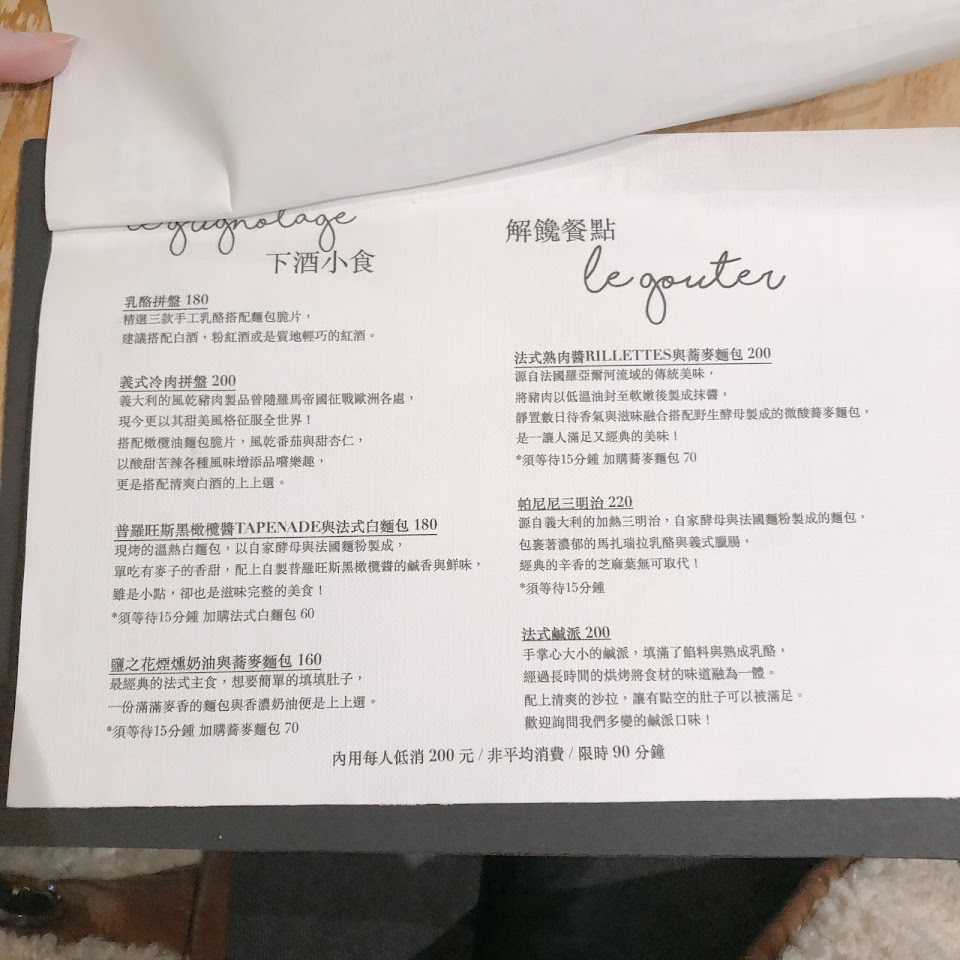 le grignotage
下酒小食
乳酪拼盤 180
精選三款手工乳酪搭配麵包脆片，
建議搭配白酒，粉紅酒或是質地輕巧的紅酒。
義式冷肉拼盤 200
義大利的風乾豬肉製品曾隨羅馬帝國征戰歐洲各處，
現今更以其甜美風格征服全世界！
搭配橄欖油麵包脆片，風乾番茄與甜杏仁，
以酸甜苦辣各種風味增添品嚐樂趣，
更是搭配清爽白酒的上上選。
普羅旺斯黑橄欖醬TAPENADE與法式白麵包 180
現烤的溫熱白麵包，以自家酵母與法國麵粉製成，
單吃有麥子的香甜，配上自製普羅旺斯黑橄欖醬的鹹香與鮮味，
雖是小點，卻也是滋味完整的美食！
*須等待15分鍾 加購法式白麵包 60
鹽之花煙燻奶油與蕎麥麵包 160
最經典的法式主食，想要簡單的填填肚子，
一份滿滿麥香的麵包與香濃奶油便是上上選。
*須等待15分鍾 加購蕎麥麵包 70
解饞餐點
le gouter
法式熟肉醬RILLETTES與蕎麥麵包 200
源自法國羅亞爾河流域的傳統美味，
將豬肉以低溫油封至軟嫩後製成抹醬，
靜置數日待香氣與滋味融合搭配野生酵母製成的微酸蕎麥麵包，
是一讓人滿足又經典的美味！
*須等待15分鍾 加購蕎麥麵包 70
帕尼尼三明治 220
源自義大利的加熱三明治，自家酵母與法國麵粉製成的麵包，
包裹著濃郁的馬扎瑞拉乳酪與義式臘腸，
經典的辛香的芝麻葉無可取代！
*須等待15分鍾
法式鹹派 200
手掌心大小的鹹派，填滿了餡料與熟成乳酪，
經過長時間的烘烤將食材的味道融為一體。
配上清爽的沙拉，讓有點空的肚子可以被滿足。
歡迎詢問我們多變的鹹派口味！
內用每人低消 200 元 / 非平均消費 / 限時 90 分鐘